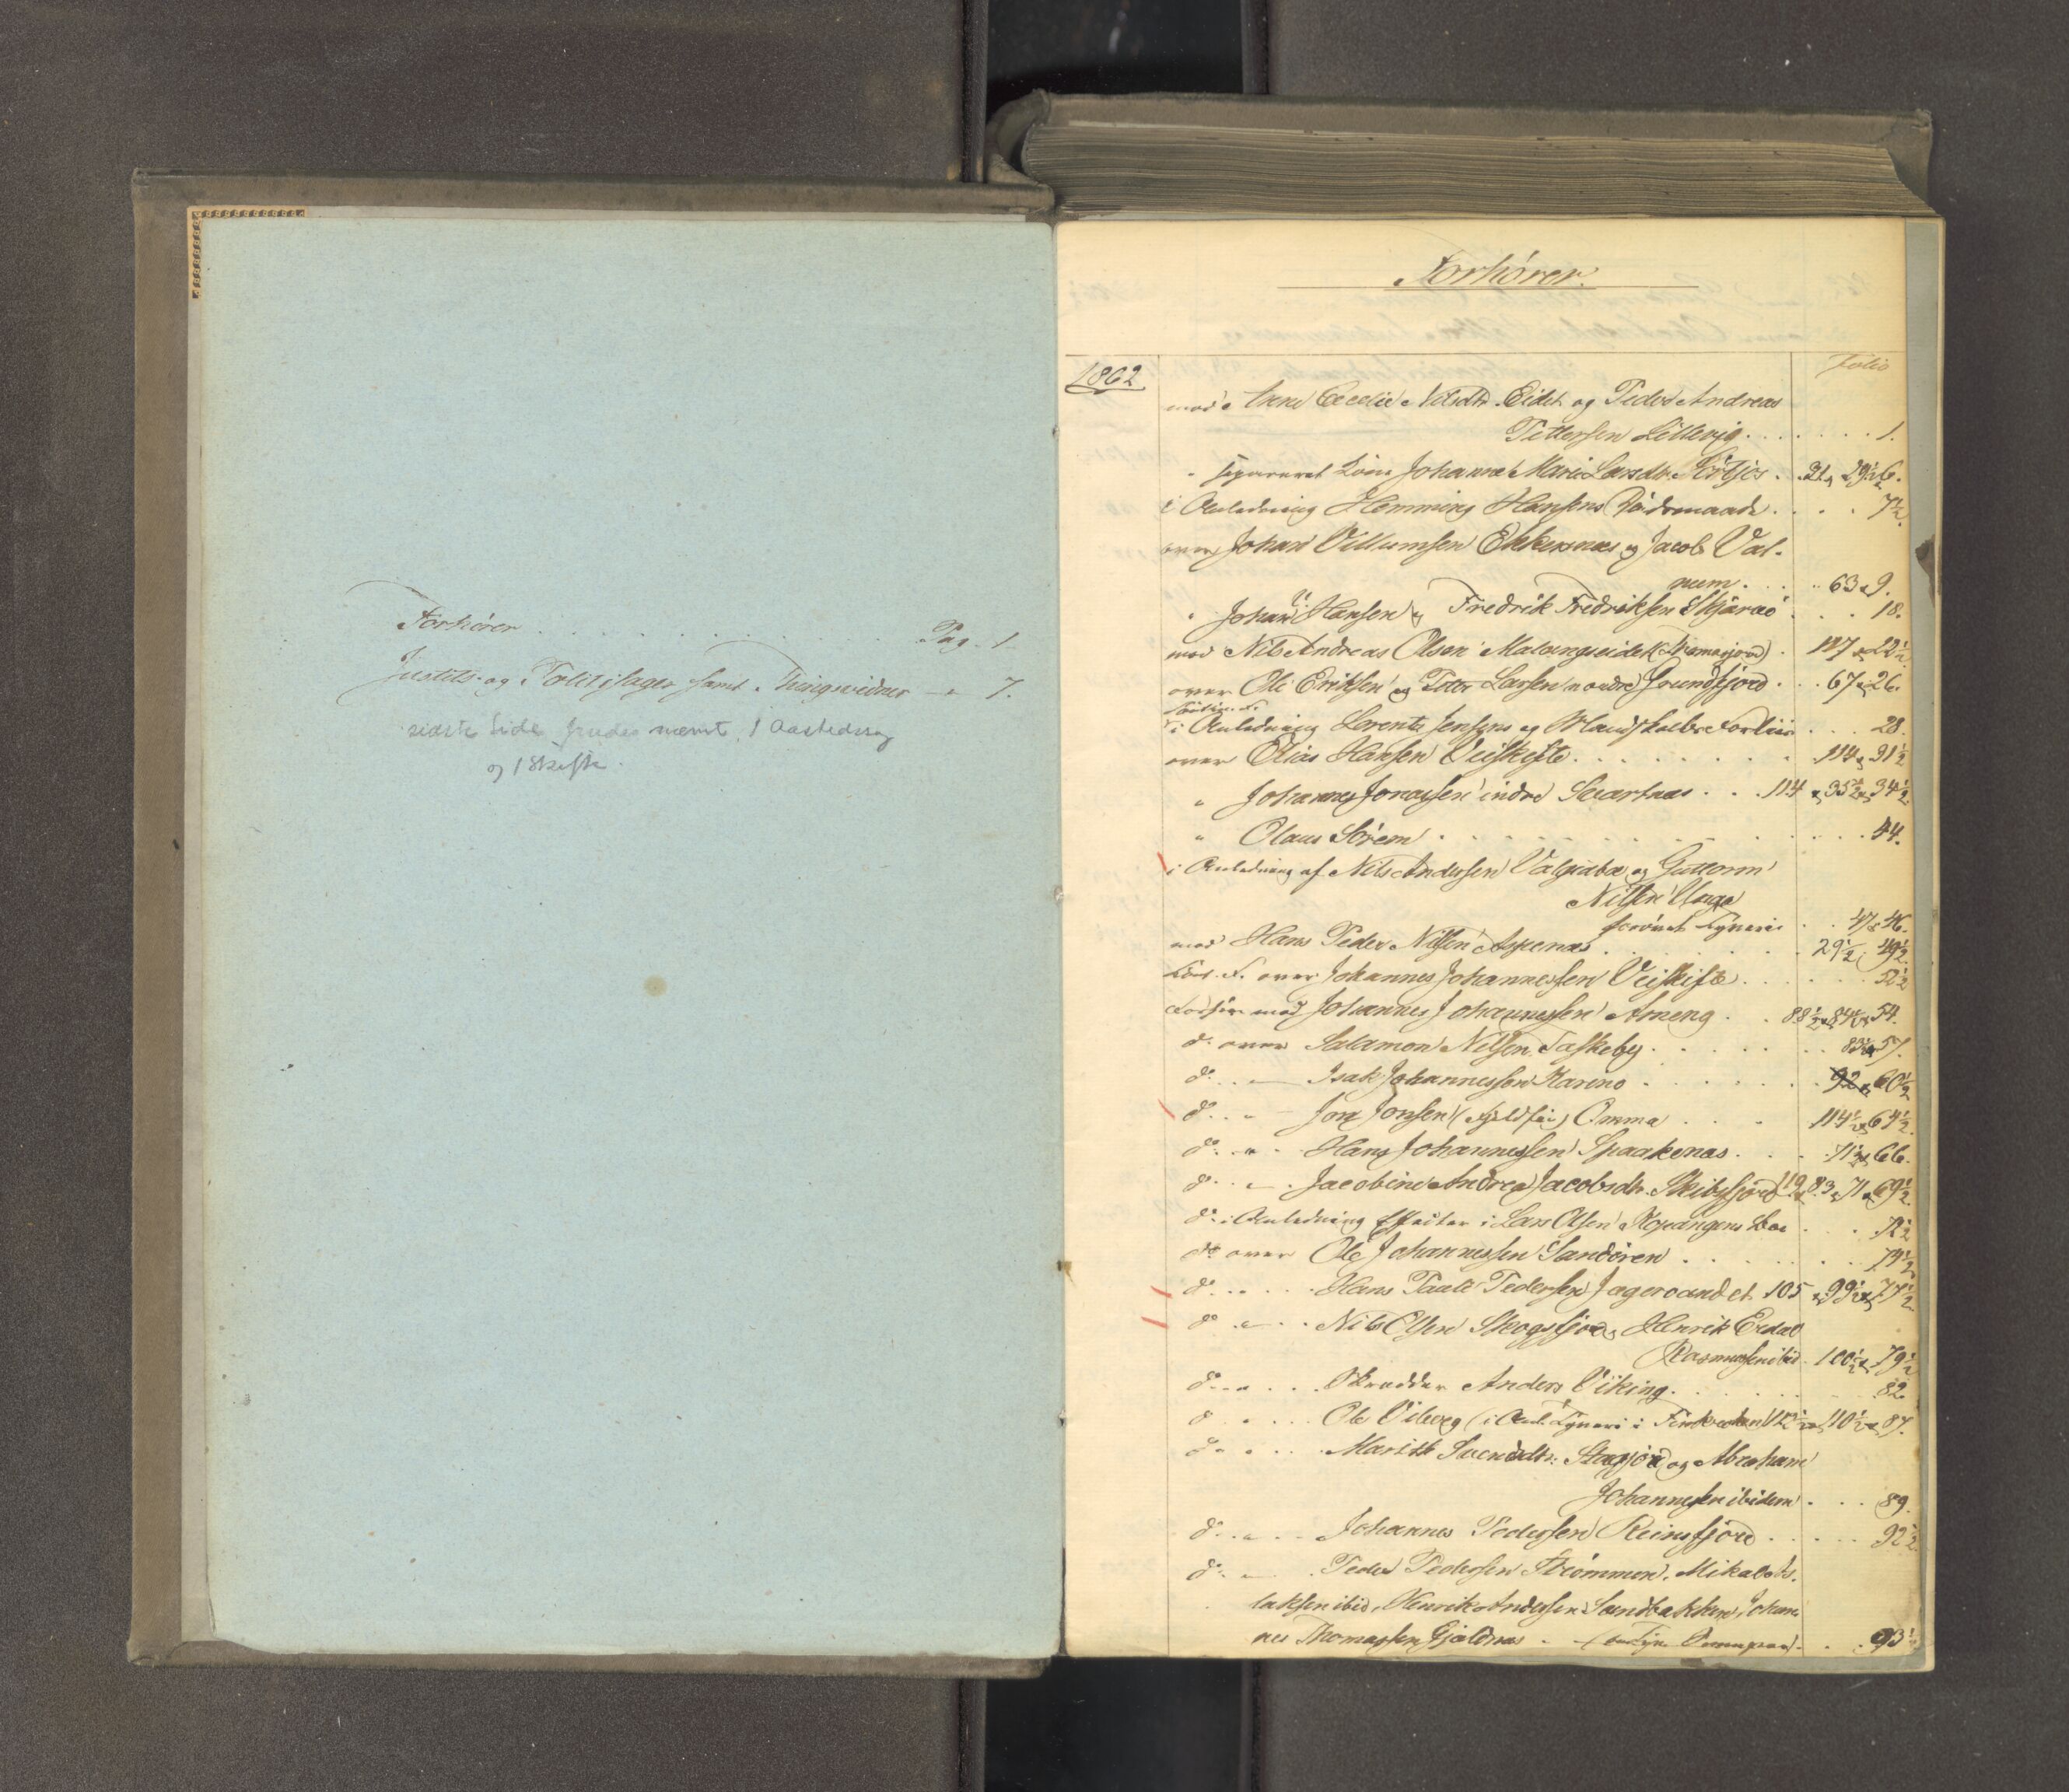 Forhører . . . . . . . . . . . Pag. 1
Justits- og Politisager samt Thingsvidner — " 7.
sidste Side findes nævnt 1 Aastedssag
og 1 Skifte.
Forhører.
1862
Folio
mod Anne Cecelie Nilsdtr. Eidet og Peder Andreas
Pettersen Lillevig . . . . . . 1.
" separeret Kone Johanna Marie Larsdtr. . 31 29½ 6.
i Anledning Hemming Hansens Dødsmaade . . . . 7½
over Johan Villumsen Ekkernæs og Jacob Val-
num . . . 63 & 9.
" Johan Hansen og Fredrik Fredriksen Skjærvø . . . 18.
mod Nils Andreas Olsen Malangseidet 22½
over Ole Eriksen og Petter Larsen nordre Grundfjord . . 67 & 26.
i Anledning Lorentz Jensens og Forliis . . . 28.
over Elias Hansen Veiskifte . . . . . . . . 114 & 31½
" Johannes Jonassen indre Svartnæs . . . 114 & 35½ & 34½
" Olaus Sørem . . . . . . . . 44.
i Anledning af Nils Andersen Valgiaba og Guttorm
Nilsen
Tyveri . . 47 & 46.
mod Hans Peder Nilsen Aspenæs . . . . . 29½ 49½
over Johannes Johannessen Veiskifte . . . . . . 52½
Forhør mod Johannes Johannessen Arneng . . 88½ & 84½ & 54.
do. over Salamon Nilsen Taskeby . . . . . 83½ & 57.
do. . " Isak Johannessen Karenø . . . . . . . 92 & 60½
do. . " Jon Jonsen (Fjeldfin) Omma . . . . 114½ & 64½
do. . " Hans Johannessen Spaakenæs . . . 71½ & 66.
do. . " Jacobine Andrea Jacobsdtr. Skibsfjord 119 & 83 & 71 & 69½
do. i Anledning Effecter i Lars Olsen Kopangens Boe . . . 72½
do over Ole Johannessen Sandøren . . . . . . . 74½
do. . . . . Hans Paul Pedersen Jagervandet 105 & 99½ & 77½
do. " . . Nils Olsen Skogsfjord, Henrik Erdal
Rasmussen ibid. 100½ & 79½
do. . " . . . Skrædder Anders Viking . . . . . . 82.
do. " . . . Ole Viberg (i Anl. Tyveri i 110½ & 87.
do. " . . . Marith Svendsdtr. Stagjord og Abraham
Johannesen ibidem . . . 89.
do. . " . . Johannes Pedersen Reinsfjord . . . . . 92½
do. " . Peder Pedersen Strømmen, Mikal As-
laksen ibid, Henrik Andersen Sandbakken, Johan-
nes Thomassen Gjøldnæs . . . 93½